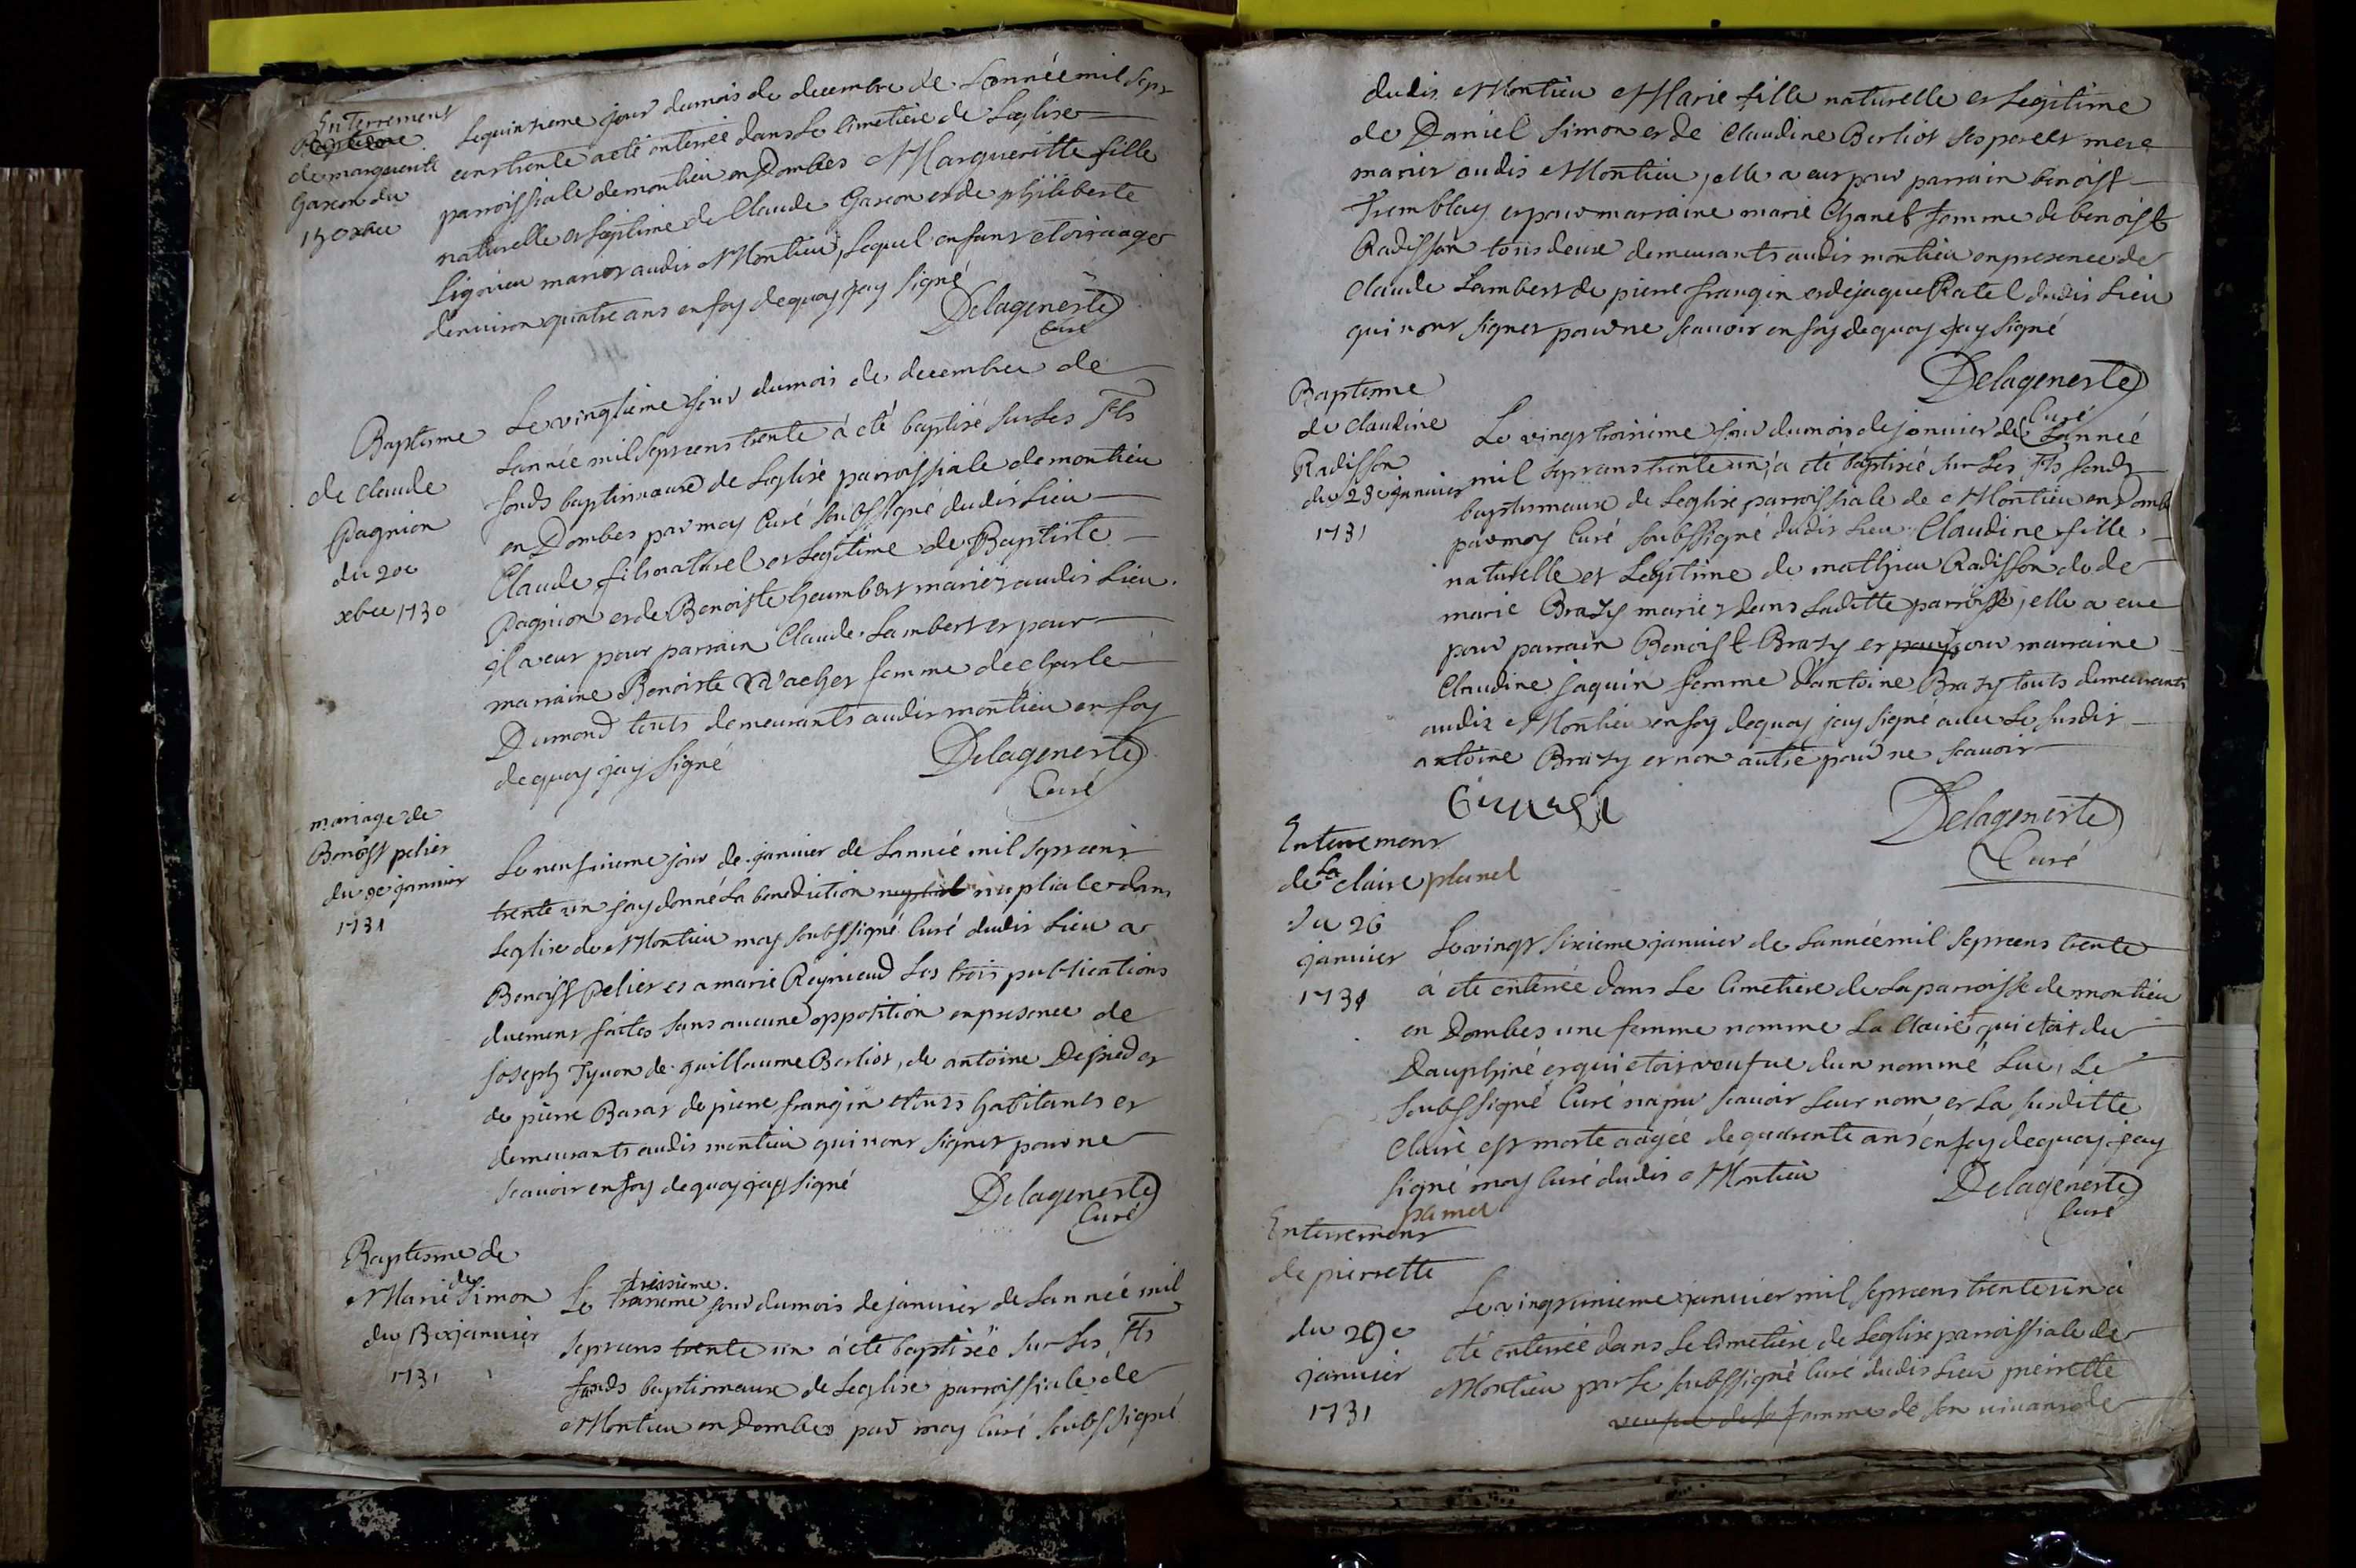 Enterrement
Baptesme
de marguerite
Gascon du
15e xbre
Le quinzieme jour du mois de decembre de Lannée mil sept
cens trente a eté enterrée dans Le Cimetiere de Leglise
parroissiale de montieu en Dombes Margueritte fille
naturelle et legitime de Claude Gascon et de philiberte
Ligonieu mariez audit Montieu, Lequel enfant etoit aagé
denuiron quatre ans en foy dequoy jay signé
Delageneste
Curé
Baptesme
de claude
Pagnion
du 20e
xbre 1730
Le vingtieme jour du mois de decembre de
Lannée mil sept cens trente à eté baptisé sur Les Fts
fonds baptismaux de Leglise parroissiale de montieu
en Dombes par moy Curé soubssigné dudit Lieu
Claude fils naturel et Legitime de Baptiste
Pagnion et de Benoiste heumbert mariez audit Lieu
il a eut pour parrain Claude Lambert et pour
marraine Benoiste Vacher femme de charle
Dumond touts demeurants audit montieu en foy
dequoy jay signé
Delageneste
Curé
mariage de
Benoist pelier
du 9e janvier
1731
Le neufvieme jour de janvier de Lannée mil sept cent
trente un jay donné La benediction nuptiale dans
Leglise de Montieu moy soubssigné Curé dudit Lieu a
Benoist Pelier et a marie Reyniend Les trois publications
duement faites sans aucune opposition en presence de
joseph Tyuon de guillaume Berliot, de antoine Depied et
de pierre Barat de pierre frangin touts habitants et
demeurants audit montieu qui nont signer pour ne
scauoir en foy dequoy jay signé
Delageneste
Curé
Baptesme de
Marie de Simon
du 13e janvier
1731
Le treisieme jour du mois de janvier de Lannée mil
sept cens trente un à eté baptisée sur Les Fts
fonds baptismaux de Leglise parroissiale de
Montieu en Dombes par moy Curé soubssigné
dudit Montieu Marie fille naturelle et Legitime
de Daniel Simon et de Claudine Berliot ses pere et mere
mariez audit Montieu, elle a eut pour parrain benoist
Tremblay et pour marraine marie Chanet femme de benoist
Radisson tous deux demeurants audit montieu en presence de
Claude Lambert de pierre frangin et de jaque Ratel dudit Lieu
qui nont signer pour ne scauoir en foy dequoy jay signé
Delageneste
Curé
Baptesme
de claudine
Radisson
du 23e janvier
1731
Le vingt troisieme jour du mois de janvier de Lannée
mil sept cens trente un, a eté baptisée sur Les Fts fonds
baptismaux de Leglise parroissiale de Montieu en Domb
par moy Curé soubssigné dudit Lieu Claudine fille
naturelle et Legitime de mathieu Radisson de de
marie Brazy mariez dans Laditte parroisse, elle a eue
pour parrain Benoist Brazy et pour marraine
Claudine jaquin femme dantoine Brazy touts demeurants
audit Montieu en foy dequoy jay signé auec Le susdit
antoine Brazy et non autre pour ne scauoir
Delageneste
Curé
Enterrement
de La claire plunel
du 26
janvier
1731
Le vingt sixieme janvier de Lannée mil sept cens trente
à eté enterrée dans Le Cimetiere de La parroisse de montieu
en Dombes une femme nomme La Claire qui etoit du
Dauphiné et qui etoit veufue dun nommé Luc, Le
soubssigné Curé na pu scauoir Leur nom et La susditte
Claire est morte aagée de quarente ans en foy dequoy jay
signé moy Curé dudit Montieu
Delageneste
Curé
Enterrement
de pierrette
du 29e
janvier
1731
Le vingt nieme janvier mil sept cens trente un à
eté enterrée dans Le Cimetiere de Leglise parroissiale de
Montieu par Le soubssigné Curé dudit Lieu pierrette
veufue de femme de son viuant de